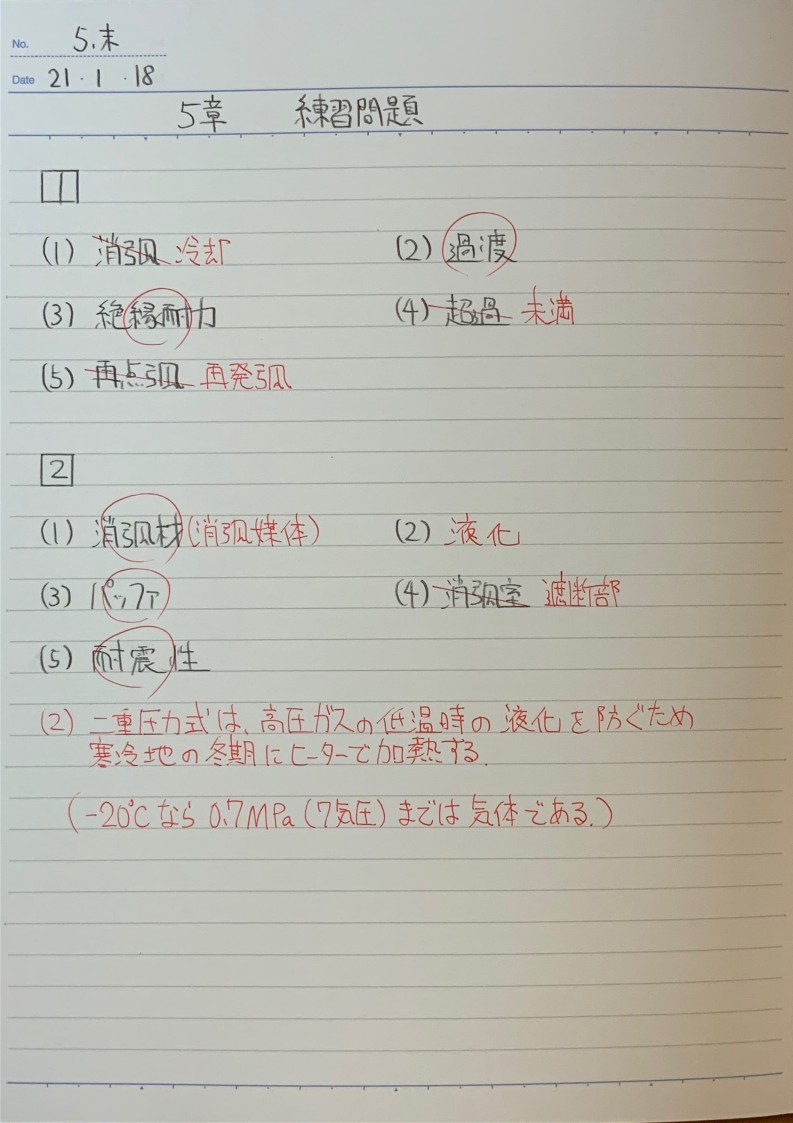 No. 5.末
Date 21・1・18
5章 練習問題
1
(1) 消弧 冷却 (2) 過渡
(3) 絶縁耐力 (4) 超過 未満
(5) 再点弧 再発弧
2
(1) 消弧材(消弧媒体) (2) 液化
(3) パッファ (4) 消弧室 遮断部
(5) 耐震性
(2) 二重圧力式は、高圧ガスの低温時の液化を防ぐため
寒冷地の冬期にヒーターで加熱する.
(-20℃なら0.7MPa(7気圧)までは気体である.)